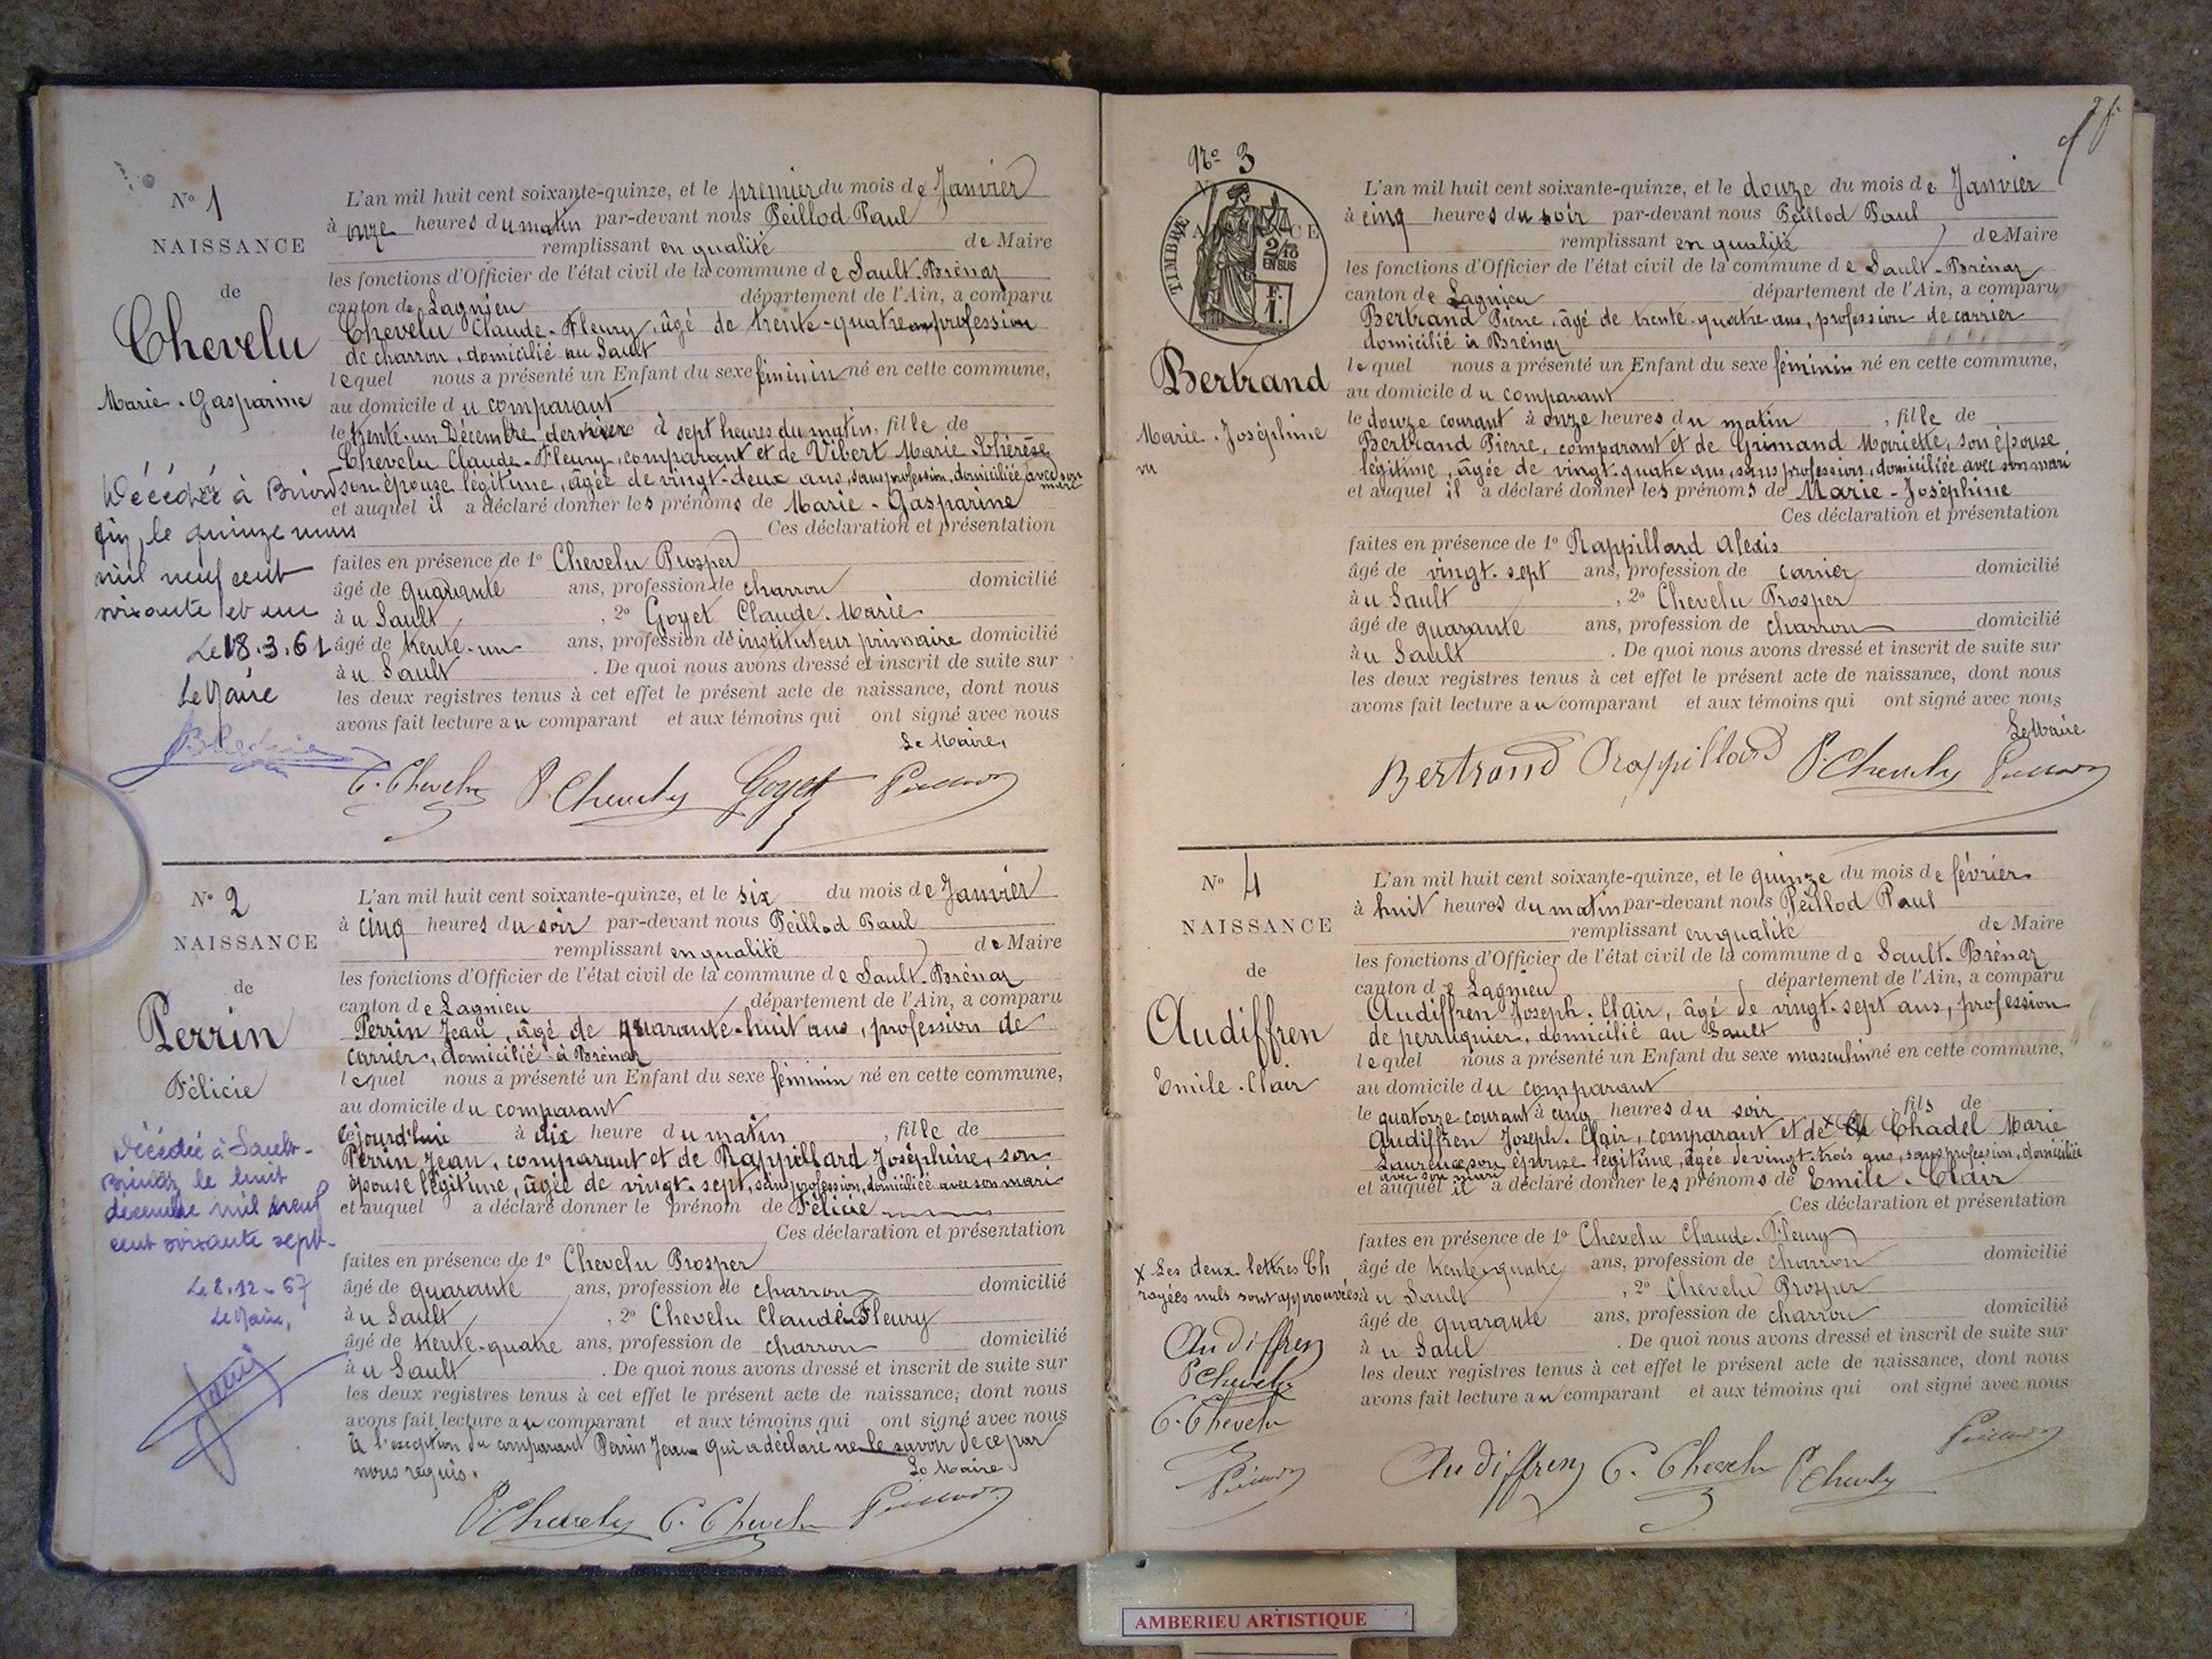 N° 1
NAISSANCE
de
Chevelu
Marie-Gasparine
Décédée à Briord
le quinze mars
mil neuf cent
soixante et un
Le 18.3.61
Le Maire
L'an mil huit cent soixante-quinze, et le premier du mois de Janvier
à onze heures du matin par-devant nous Peillod Paul
remplissant en qualité de Maire
les fonctions d'Officier de l'état civil de la commune de Sault-Brénaz
canton de Lagnieu département de l'Ain, a comparu
Chevelu Claude-Fleury, âgé de trente-quatre ans, profession
de charron, domicilié au Sault
lequel nous a présenté un Enfant du sexe féminin né en cette commune,
au domicile du comparant
le trente-un Décembre dernier à sept heures du matin, fille de
Chevelu Claude-Fleury, comparant et de Vibert Marie-Thérèse
son épouse légitime, âgée de vingt-deux ans, sans profession, domiciliée avec son
mari
et auquel il a déclaré donner les prénoms de Marie-Gasparine
Ces déclaration et présentation
faites en présence de 1° Chevelu Prosper
âgé de quarante ans, profession de charron domicilié
au Sault, 2° Goyet Claude-Marie
âgé de trente-un ans, profession de instituteur primaire domicilié
au Sault. De quoi nous avons dressé et inscrit de suite sur
les deux registres tenus à cet effet le présent acte de naissance, dont nous
avons fait lecture au comparant et aux témoins qui ont signé avec nous
Le Maire,
C. Chevelu P. Chevelu Goyet Peillod
N° 2
NAISSANCE
de
Perrin
Félicie
Décédée à Sault-
Brénaz le huit
décembre mil neuf
cent soixante sept.
Le 8.12.67
Le Maire,
L'an mil huit cent soixante-quinze, et le six du mois de Janvier
à cinq heures du soir par-devant nous Peillod Paul
remplissant en qualité de Maire
les fonctions d'Officier de l'état civil de la commune de Sault-Brénaz
canton de Lagnieu département de l'Ain, a comparu
Perrin Jean, âgé de quarante-huit ans, profession de
carrier, domicilié à Brénaz
lequel nous a présenté un Enfant du sexe féminin né en cette commune,
au domicile du comparant
cejourd'hui à dix heure du matin, fille de
Perrin Jean, comparant et de Rappillard Joséphine, son
épouse légitime, âgée de vingt-sept, sans profession, domiciliée avec son mari
et auquel a déclaré donner le prénom de Félicie
Ces déclaration et présentation
faites en présence de 1° Chevelu Prosper
âgé de quarante ans, profession de charron domicilié
au Sault, 2° Chevelu Claude-Fleury
âgé de trente-quatre ans, profession de charron domicilié
au Sault. De quoi nous avons dressé et inscrit de suite sur
les deux registres tenus à cet effet le présent acte de naissance, dont nous
avons fait lecture au comparant et aux témoins qui ont signé avec nous
à l'exception du comparant Perrin Jean qui a déclaré ne le savoir de ce par
nous requis.
Le Maire
P. Chevelu C. Chevelu Peillod
N° 3
TIMBRE
2/10
EN SUS
F.
1.
Bertrand
Marie-Joséphine
vu
L'an mil huit cent soixante-quinze, et le douze du mois de Janvier
à cinq heures du soir par-devant nous Peillod Paul
remplissant en qualité de Maire
les fonctions d'Officier de l'état civil de la commune de Sault-Brénaz
canton de Lagnieu département de l'Ain, a comparu
Bertrand Pierre, âgé de trente-quatre ans, profession de carrier
domicilié à Brénaz
lequel nous a présenté un Enfant du sexe féminin né en cette commune,
au domicile du comparant
le douze courant à onze heures du matin, fille de
Bertrand Pierre, comparant et de Grimand Mariette, son épouse
légitime, âgée de vingt-quatre ans, sans profession, domiciliée avec son mari
et auquel il a déclaré donner les prénoms de Marie-Joséphine
Ces déclaration et présentation
faites en présence de 1° Rappillard Alexis
âgé de vingt-sept ans, profession de carrier domicilié
au Sault, 2° Chevelu Prosper
âgé de quarante ans, profession de charron domicilié
au Sault. De quoi nous avons dressé et inscrit de suite sur
les deux registres tenus à cet effet le présent acte de naissance, dont nous
avons fait lecture au comparant et aux témoins qui ont signé avec nous
Le Maire
Bertrand Rappillard P. Chevelu Peillod
N° 4
NAISSANCE
de
Audiffren
Emile-Clair
x Les deux lettres Ch
rayées nuls sont approuvées
Audiffren
P Chevelu
C. Chevelu
Peillod
L'an mil huit cent soixante-quinze, et le quinze du mois de février
à huit heures du matin par-devant nous Peillod Paul
remplissant en qualité de Maire
les fonctions d'Officier de l'état civil de la commune de Sault-Brénaz
canton de Lagnieu département de l'Ain, a comparu
Audiffren Joseph-Clair, âgé de vingt-sept ans, profession
de perruquier, domicilié au Sault
lequel nous a présenté un Enfant du sexe masculin né en cette commune,
au domicile du comparant
le quatorze courant à cinq heures du soir fils de
Audiffren Joseph-Clair, comparant et de x Ch Chadel Marie
Laurence son épouse légitime, âgée de vingt-trois ans, sans profession, domiciliée
avec son mari
et auquel il a déclaré donner les prénoms de Emile-Clair
Ces déclaration et présentation
faites en présence de 1° Chevelu Claude-Fleury
âgé de trente-quatre ans, profession de charron domicilié
au Sault, 2° Chevelu Prosper
âgé de quarante ans, profession de charron domicilié
au Saul. De quoi nous avons dressé et inscrit de suite sur
les deux registres tenus à cet effet le présent acte de naissance, dont nous
avons fait lecture au comparant et aux témoins qui ont signé avec nous
Audiffren C. Chevelu P. Chevelu Peillod
AMBERIEU ARTISTIQUE